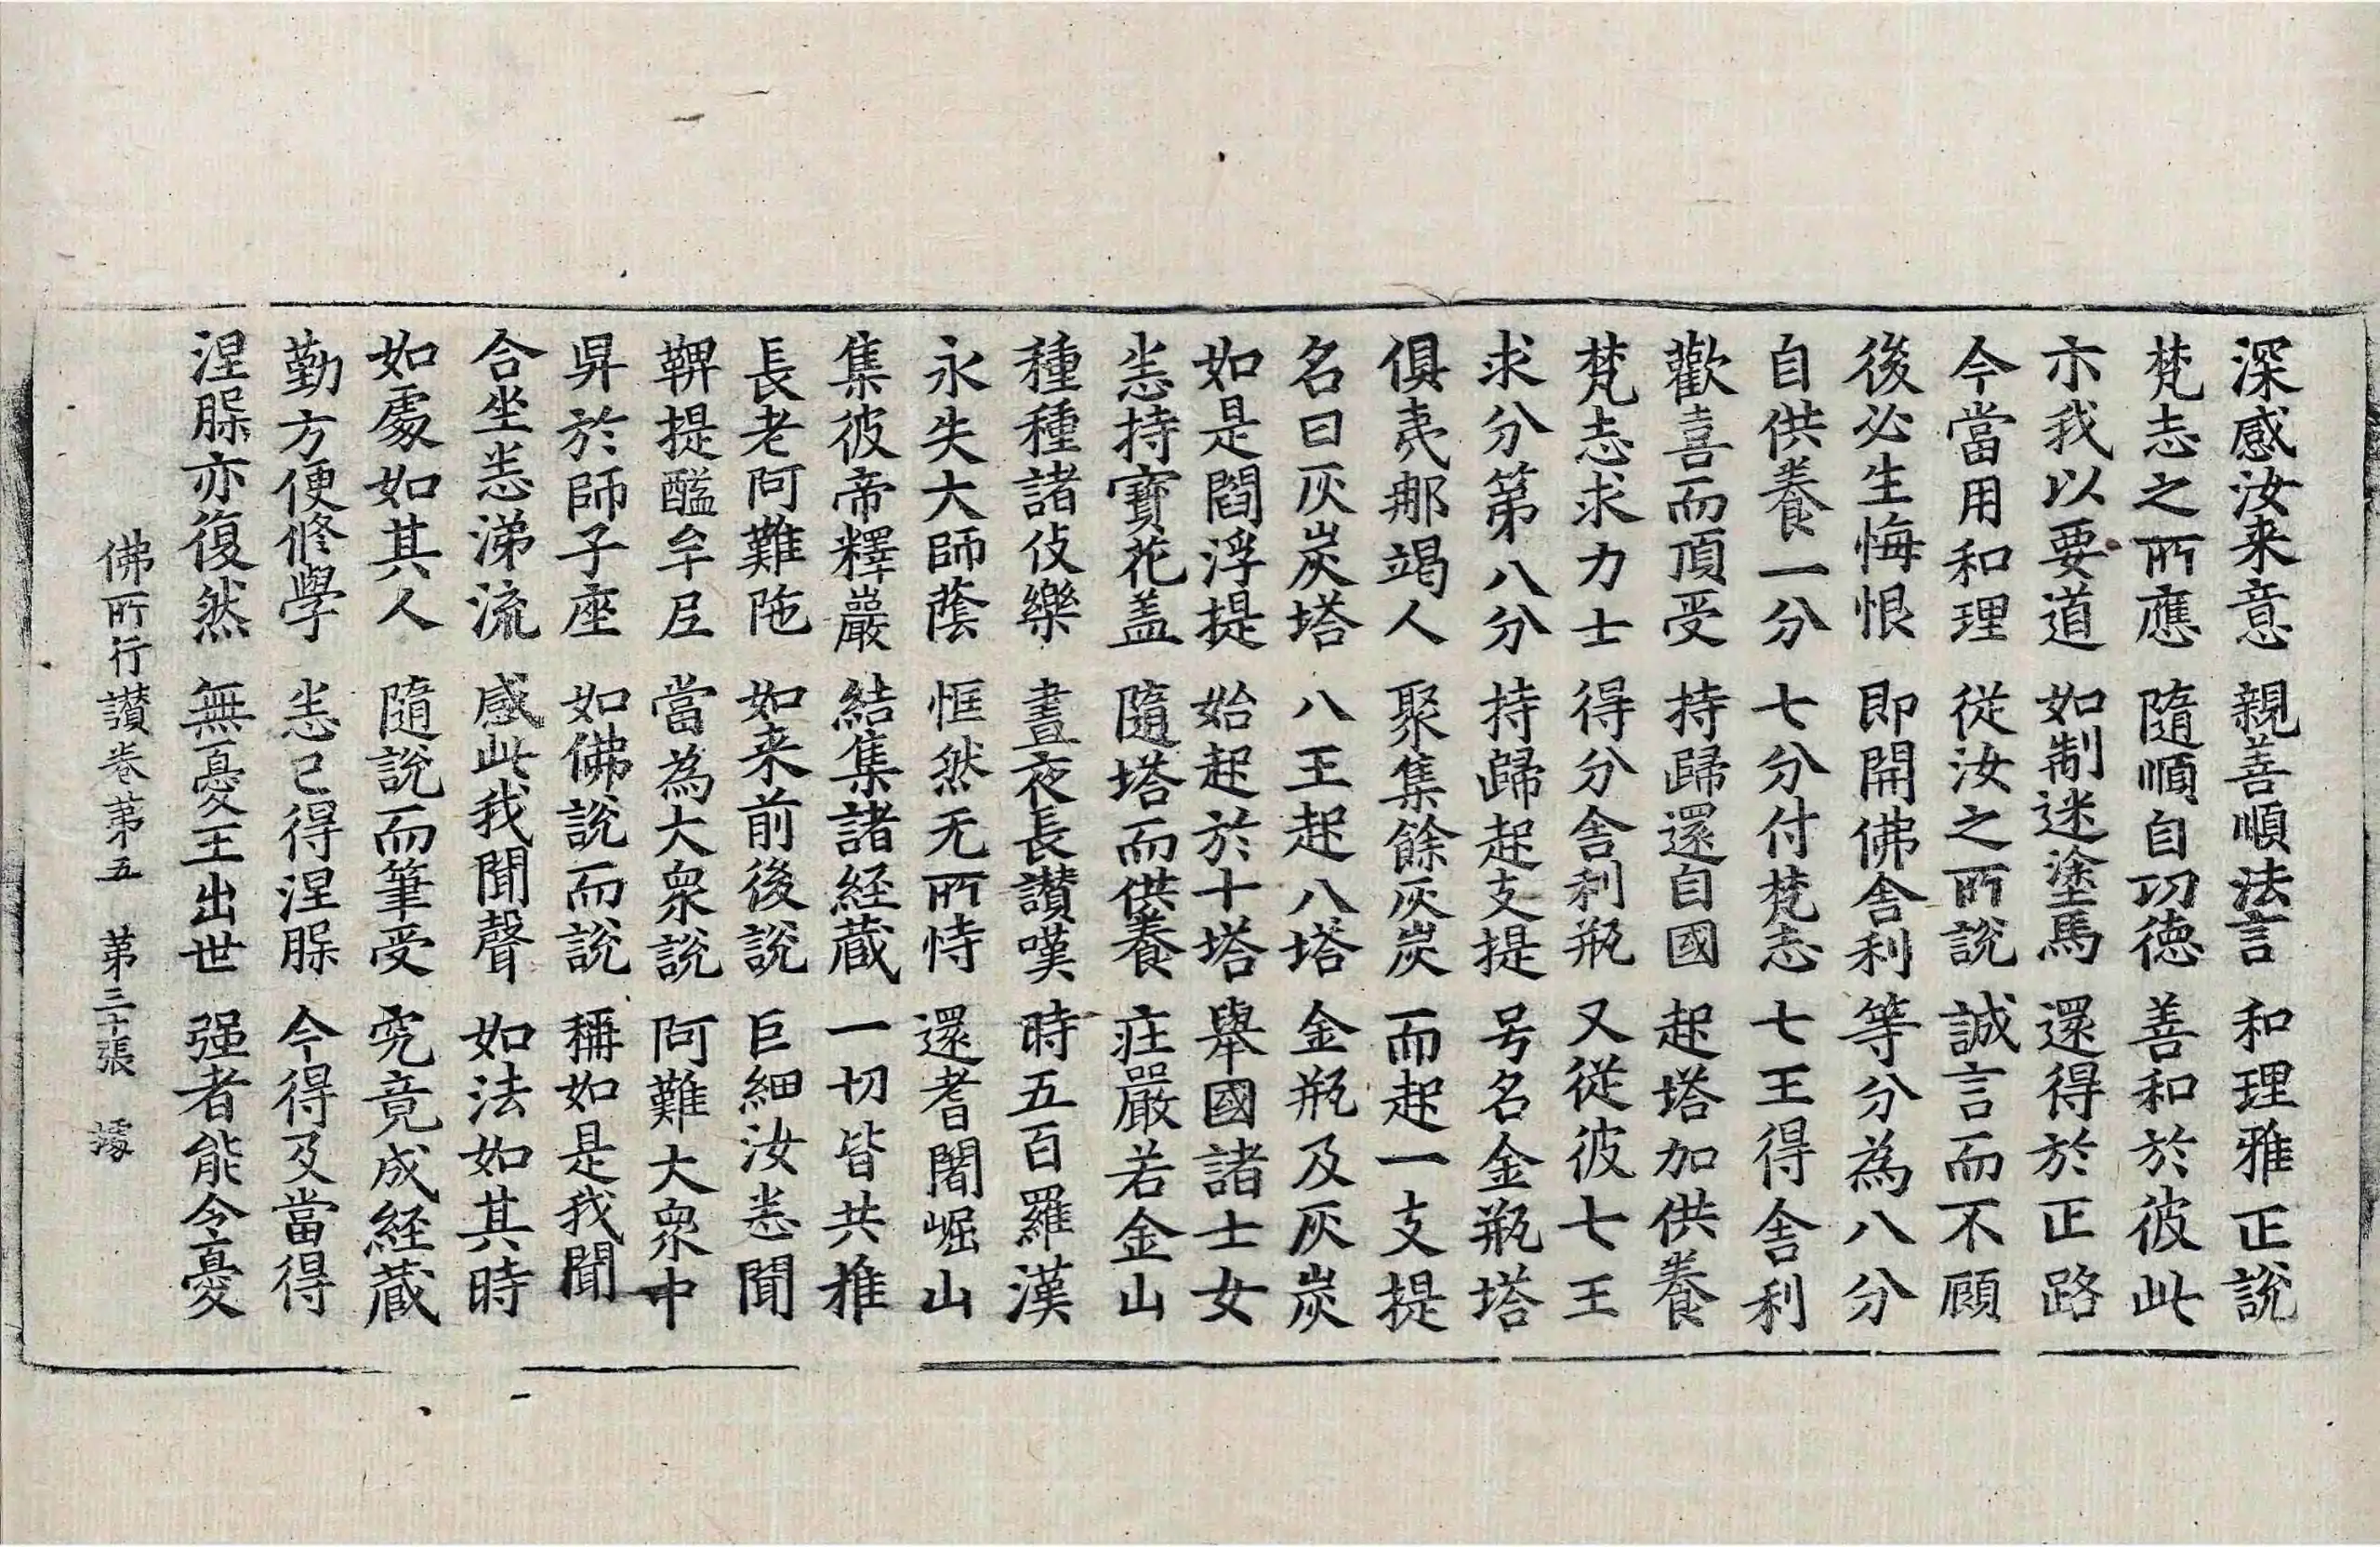 深感汝来意　親善順法言　和理雅正說
梵志之所應　隨順自功德　善和於彼此
示我以要道　如制迷塗馬　還得於正路
今當用和理　從汝之所說　誠言而不顧
後必生悔恨　即開佛舍利　等分為八分
自供養一分　七分付梵志　七王得舍利
歡喜而頂受　持歸還自國　起塔加供養
梵志求力士　得分舍利瓶　又從彼七王
求分第八分　持歸起支提　号名金瓶塔
俱夷那竭人　聚集餘灰炭　而起一支提
名曰灰炭塔　八王起八塔　金瓶及灰炭
如是閻浮提　始起於十塔　舉國諸士女
悉持寶花盖　隨塔而供養　庄嚴若金山
種種諸伎樂　晝夜長讃嘆　時五百羅漢
永失大師蔭　恇然无所恃　還耆闍崛山
集彼帝釋巖　結集諸経蔵　一切皆共推
長老阿難陁　如来前後說　巨細汝悉聞
鞞提醯牟尼　當為大衆說　阿難大衆中
昇於師子座　如佛說而說　稱如是我聞
合坐悉涕流　感此我聞聲　如法如其時
如處如其人　隨說而筆受　究竟成経蔵
勤方便修學　悉已得涅槃　今得及當得
涅槃亦復然　無憂王出世　强者能令憂
佛所行讃卷第五　第三十張　㯫